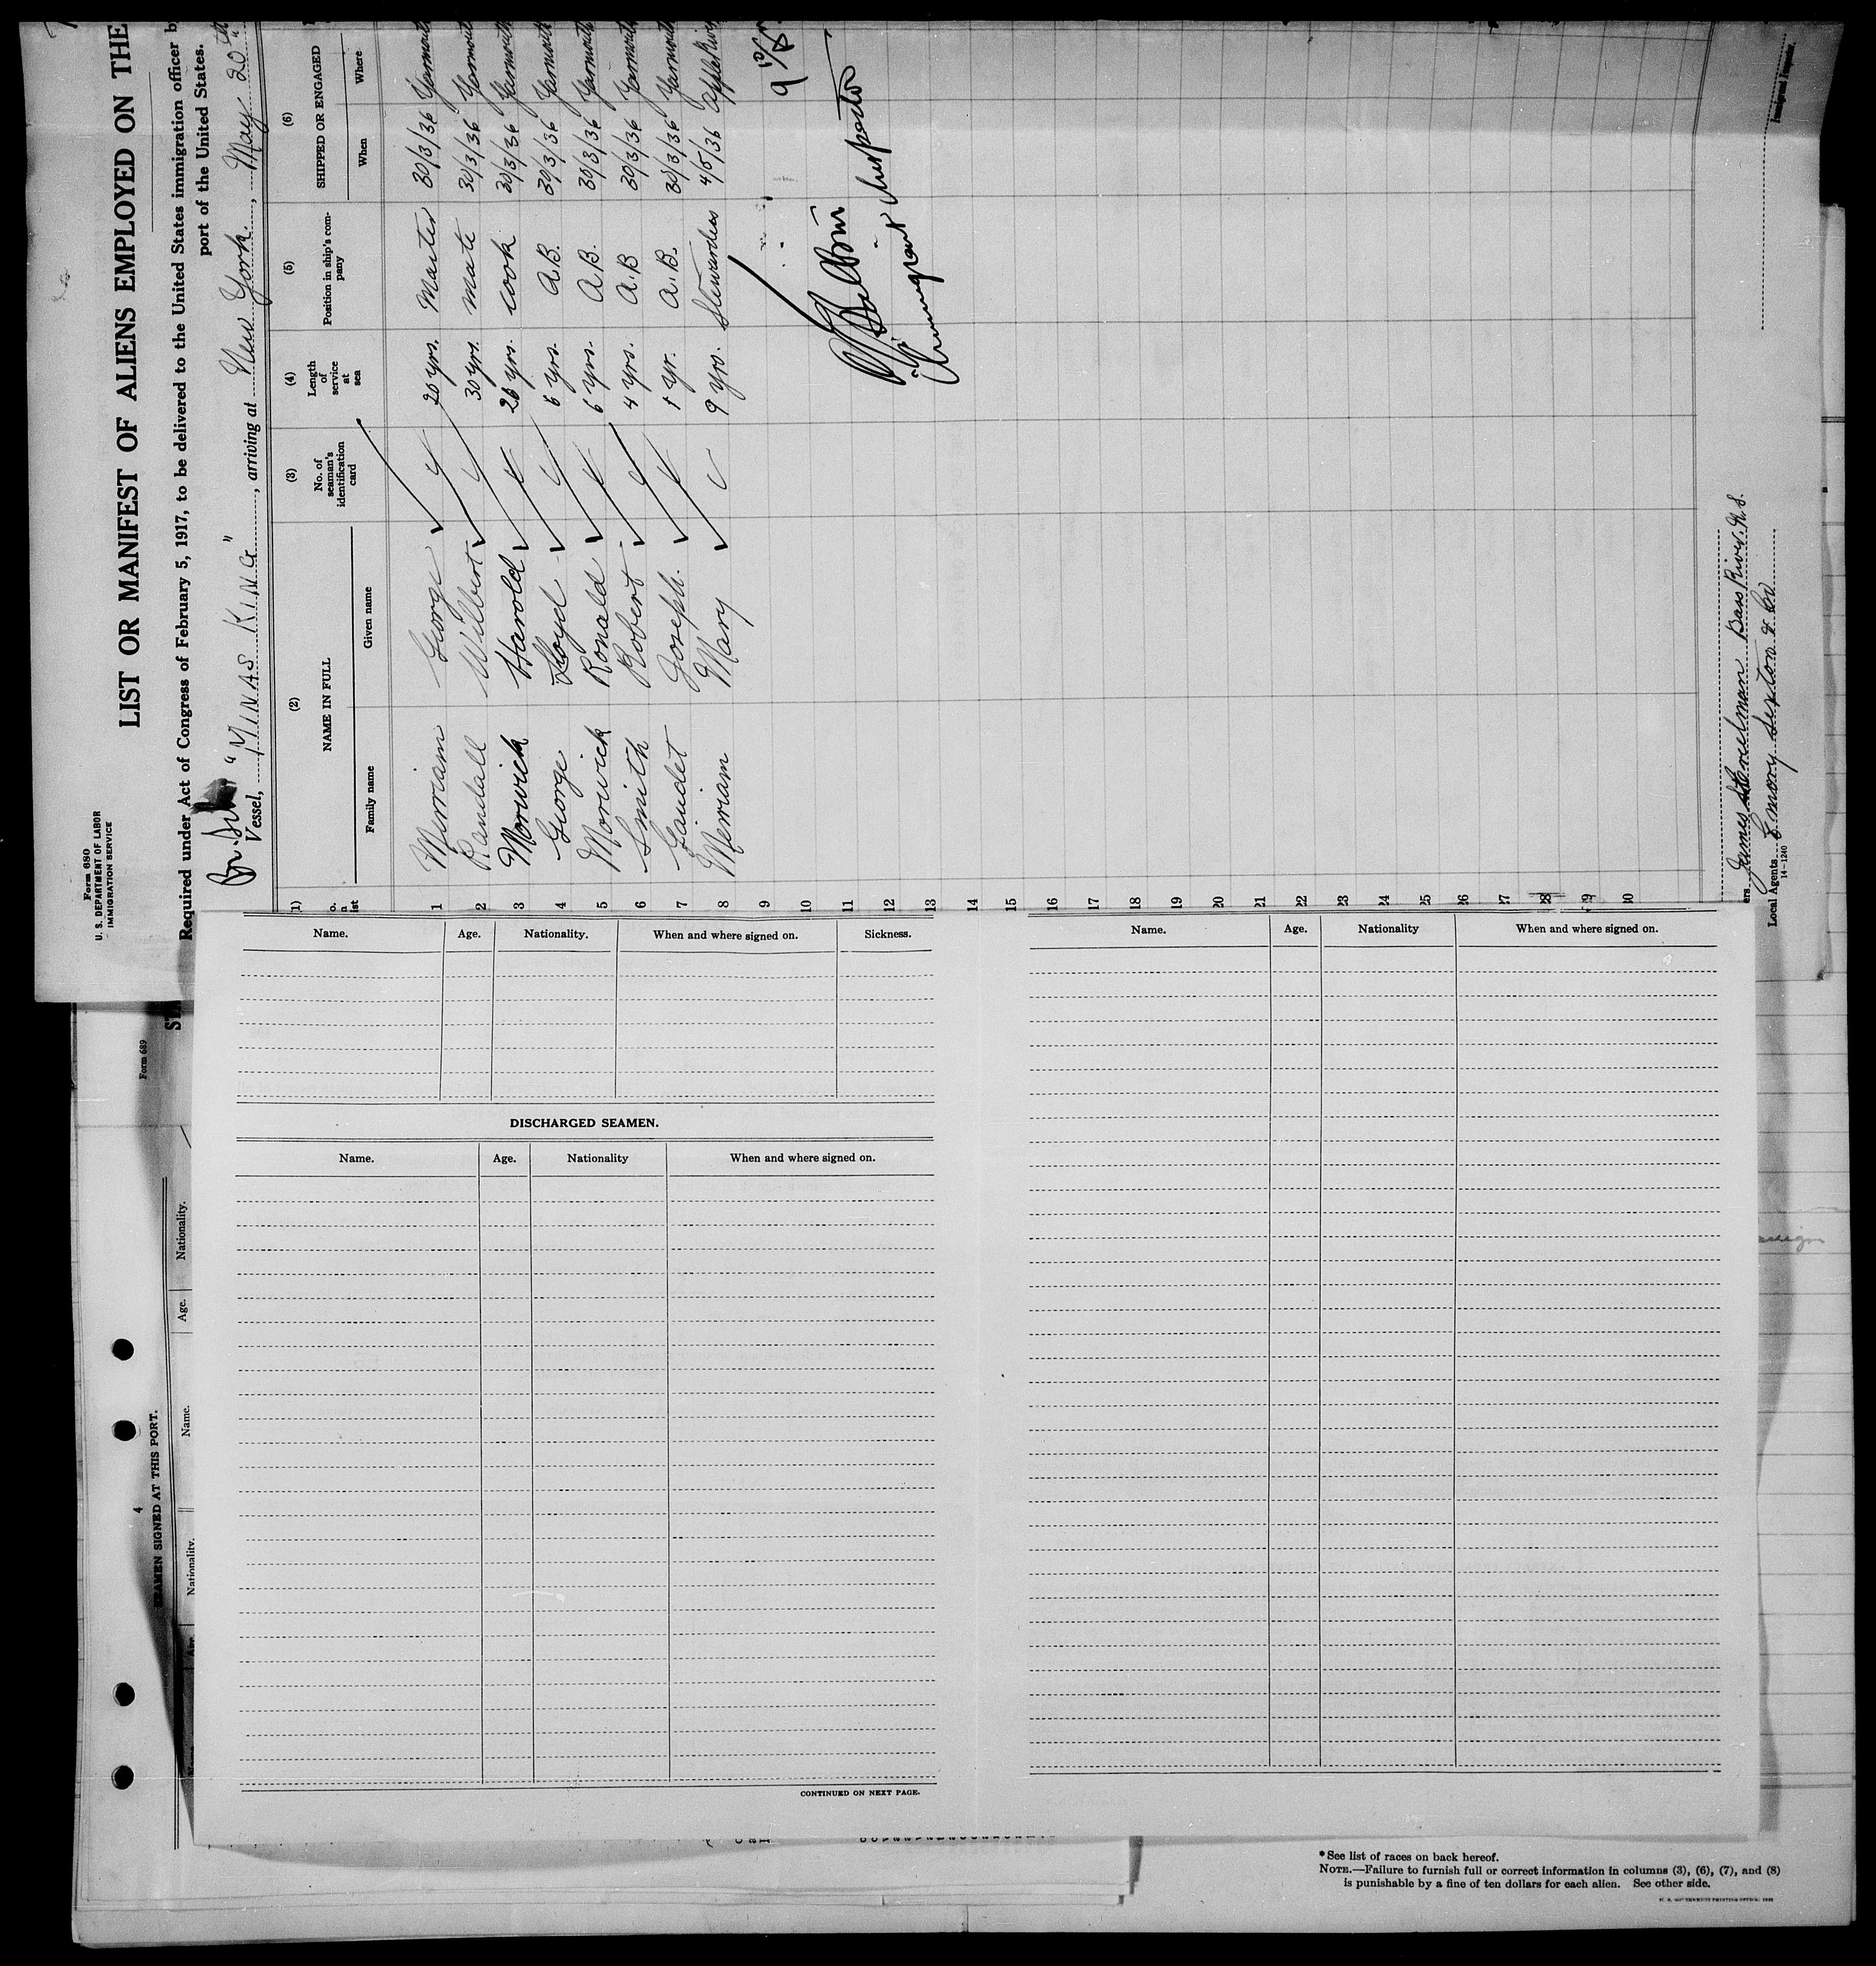 Form 680
U. S. DEPARTMENT OF LABOR
IMMIGRATION SERVICE
LIST OR MANIFEST OF ALIENS EMPLOYED ON THE
Required under Act of Congress of February 5, 1917, to be delivered to the United States immigration officer b
port of the United States.
Vessel, "MINAS KING", arriving at New York, May 20th
(2) (3) (4) (5) (6)
NAME IN FULL No. of seaman's identification card Length of service at sea Position in ship's company SHIPPED OR ENGAGED
Family name Given name When Where
1 Merriam George 20 yrs. Master 30/3/36 Yarmouth
2 Randall Wilbert 30 yrs. mate 30/3/36 Yarmouth
3 Morwick Harold yrs. cook 30/3/36 Yarmouth
4 George Lloyd yrs. A.B. 30/3/36 Yarmouth
5 Morwick Ronald 6 yrs. A.B. 30/3/36 Yarmouth
6 Smith Robert 4 yrs. A.B 30/3/36 Yarmouth
7 Gaudet Joseph. 1 yr. A.B. 30/3/36 Yarmouth
8 Merriam Mary 9 yrs. Stewardess 4/5/36 Apple River
9
10
11
12
13
14
15
16
17
18
19
20
21
22
23
24
25
26
27
28
29
30
Immigrant Inspector
James Creelman Bass River. N.S.
Local Agents Emmory Sexton & Co
14-1240
Immigrant Inspector.
Name. Age. Nationality. When and where signed on. Sickness.
DISCHARGED SEAMEN.
Name. Age. Nationality When and where signed on.
CONTINUED ON NEXT PAGE.
Name. Age. Nationality When and where signed on.
Form 689
4
SEAMEN SIGNED AT THIS PORT.
Nationality. Name. Age. Nationality.
*See list of races on back hereof.
NOTE.—Failure to furnish full or correct information in columns (3), (6), (7), and (8)
is punishable by a fine of ten dollars for each alien. See other side.